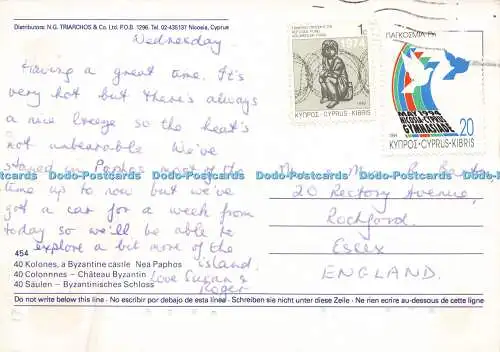 Distributors: N.G. TRIARCHOS & Co. Ltd. P.O.B. 1296, Tel. 02-435137 Nicosia, Cyprus
Wednesday
Having a great time. It's
very hot but there's always
a nice breeze so the heat's
not unbearable. We've
stayed in Paphos most of
time up to now but we've
got a car for a week from
today so we'll be able to
explore a bit more of the
island.
Love Susan &
Roger
454
40 Kolones, a Byzantine castle Nea Paphos
40 Colonnnes – Château Byzantin
40 Säulen – Byzantinisches Schloss
Do not write below this line - No escribir por debajo de esta línea - Schreiben sie nicht unter diese Zeile - Ne rien ecrire au-dessous de cette ligne
1c
1974
ΚΥΠΡΟΣ CYPRUS KIBRIS
ΠΑΓΚΟΣΜΙΑ
MAY 1994
NICOSIA-CYPRUS
GYMNASIADE
20
1994
ΚΥΠΡΟΣ·CYPRUS·KIBRIS
20 Rectory Avenue,
Rochford.
Essex
ENGLAND.
Dodo-Postcards Dodo-Postcards Dodo-Postcards Dodo-Postcards